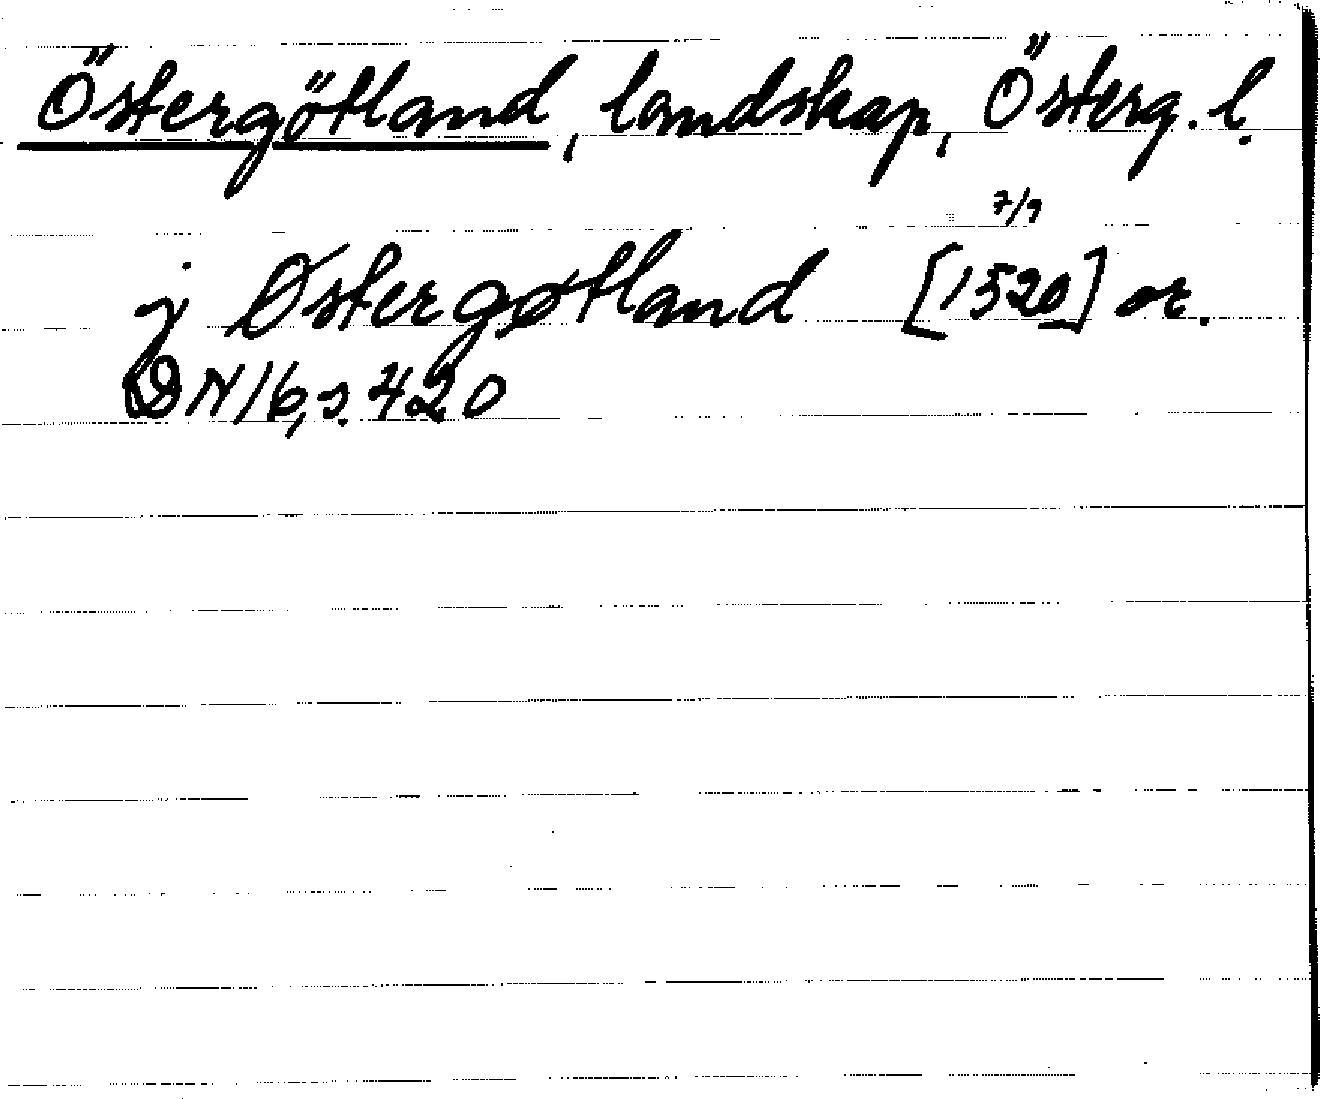 Östergötland, landskap, Österg. l.
7/9
j Østergøtland [1520] or.
DN 16, s. 420